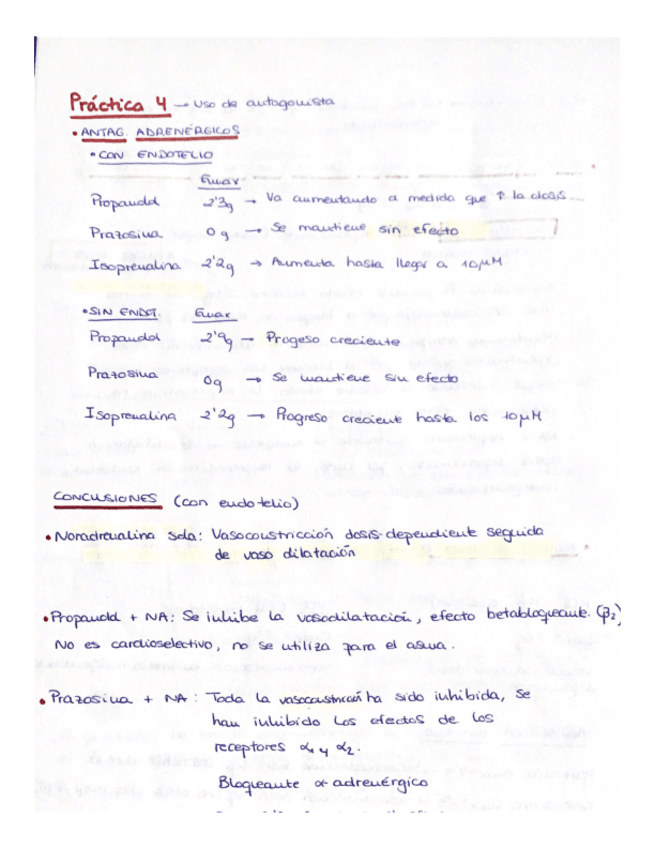 Práctica 4 → Uso de antagonista
• ANTAG. ADRENÉRGICOS
• CON ENDOTELIO
Emax
Propanolol 2'3g → Va aumentando a medida que ↑ la dosis
Prazosina 0g → Se mantiene sin efecto
Isoprenalina 2'2g → Aumenta hasta llegar a 10μM
• SIN ENDOT. Emax.
Propanolol 2'9g → Progeso creciente
Prazosina 0g → Se mantiene sin efecto
Isoprenalina 2'2g → Progreso creciente hasta los 10μM
CONCLUSIONES (con endotelio)
• Noradrenalina Sola: Vasoconstricción dosis-dependiente seguida
de vaso dilatación
• Propanolol + NA: Se inhibe la vasodilatación, efecto betabloqueante. (β2)
No es cardioselectivo, no se utiliza para el asma.
• Prazosina + NA: Toda la vasoconstricción ha sido inhibida, se
han inhibido los efectos de los
receptores α1 y α2.
Bloqueante α adrenérgico